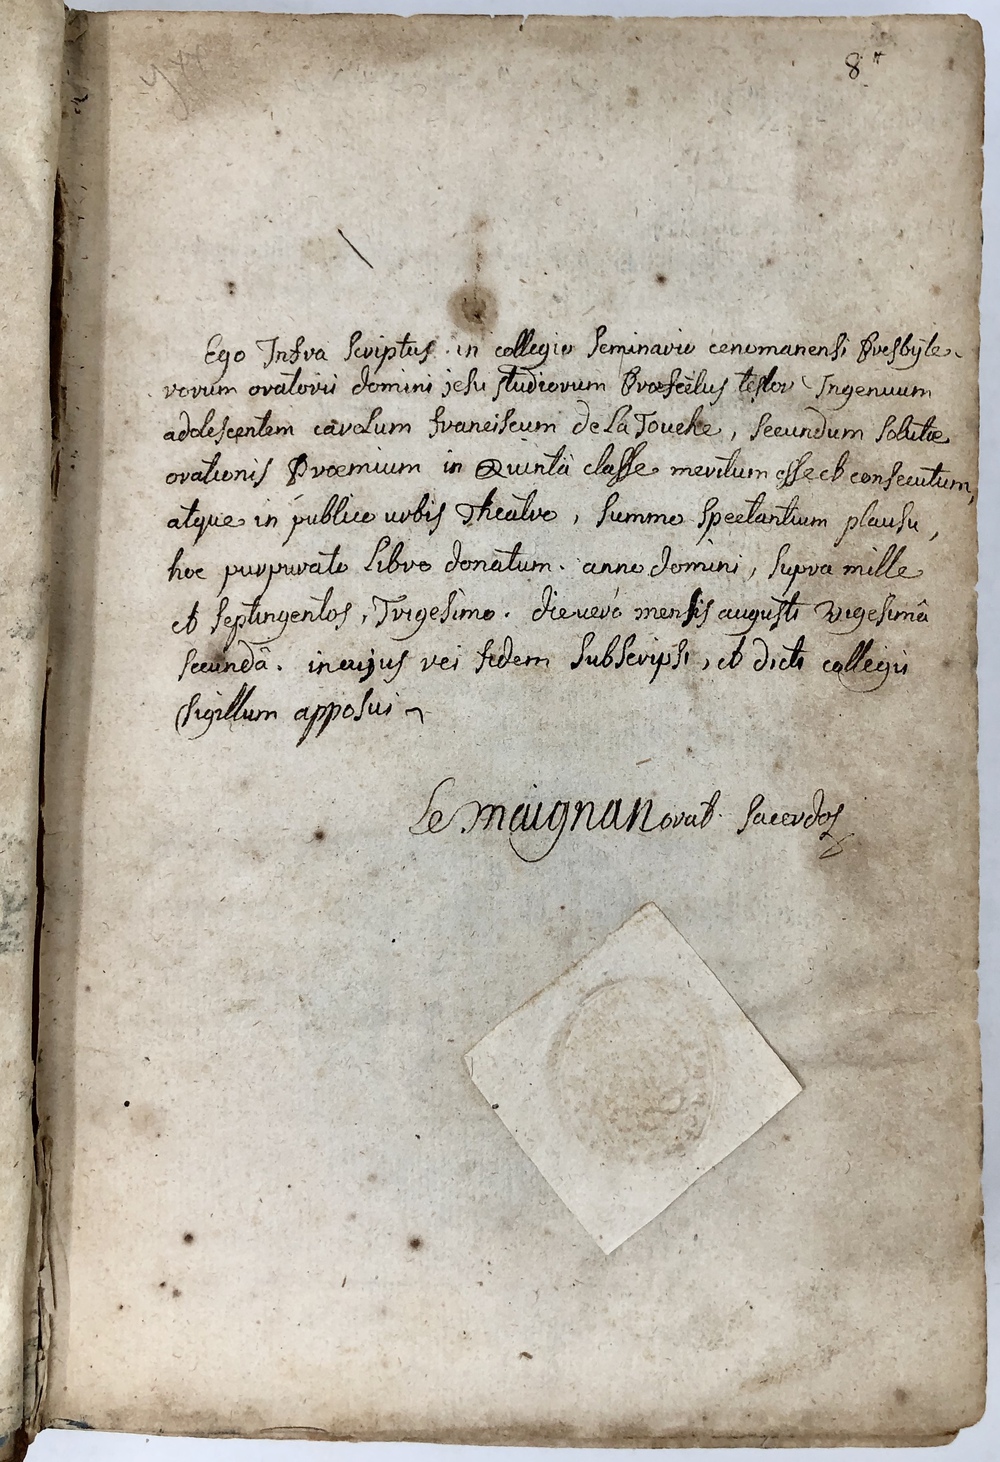 8
Ego Infra Scriptus in collegio Seminario cenomanensi Presbyte-
rorum oratorii domini jesu studiorum Præfectus testor Ingenuum
adolescentem carolum franciscum de La Touche, Secundum Solutæ
orationis Præmium in Quintâ classe meritum esse et consecutum,
atque in publico urbis Theatro, Summo Spectantium plausu,
hoc purpurato Libro donatum. anno domini, Supra mille
et Septingentos, Trigesimo. die vero mensis augusti Vigesimâ
Secundâ. in cujus rei fidem Subscripsi, et dicti collegii
Sigillum apposui
Le maignan orat. Sacerdos